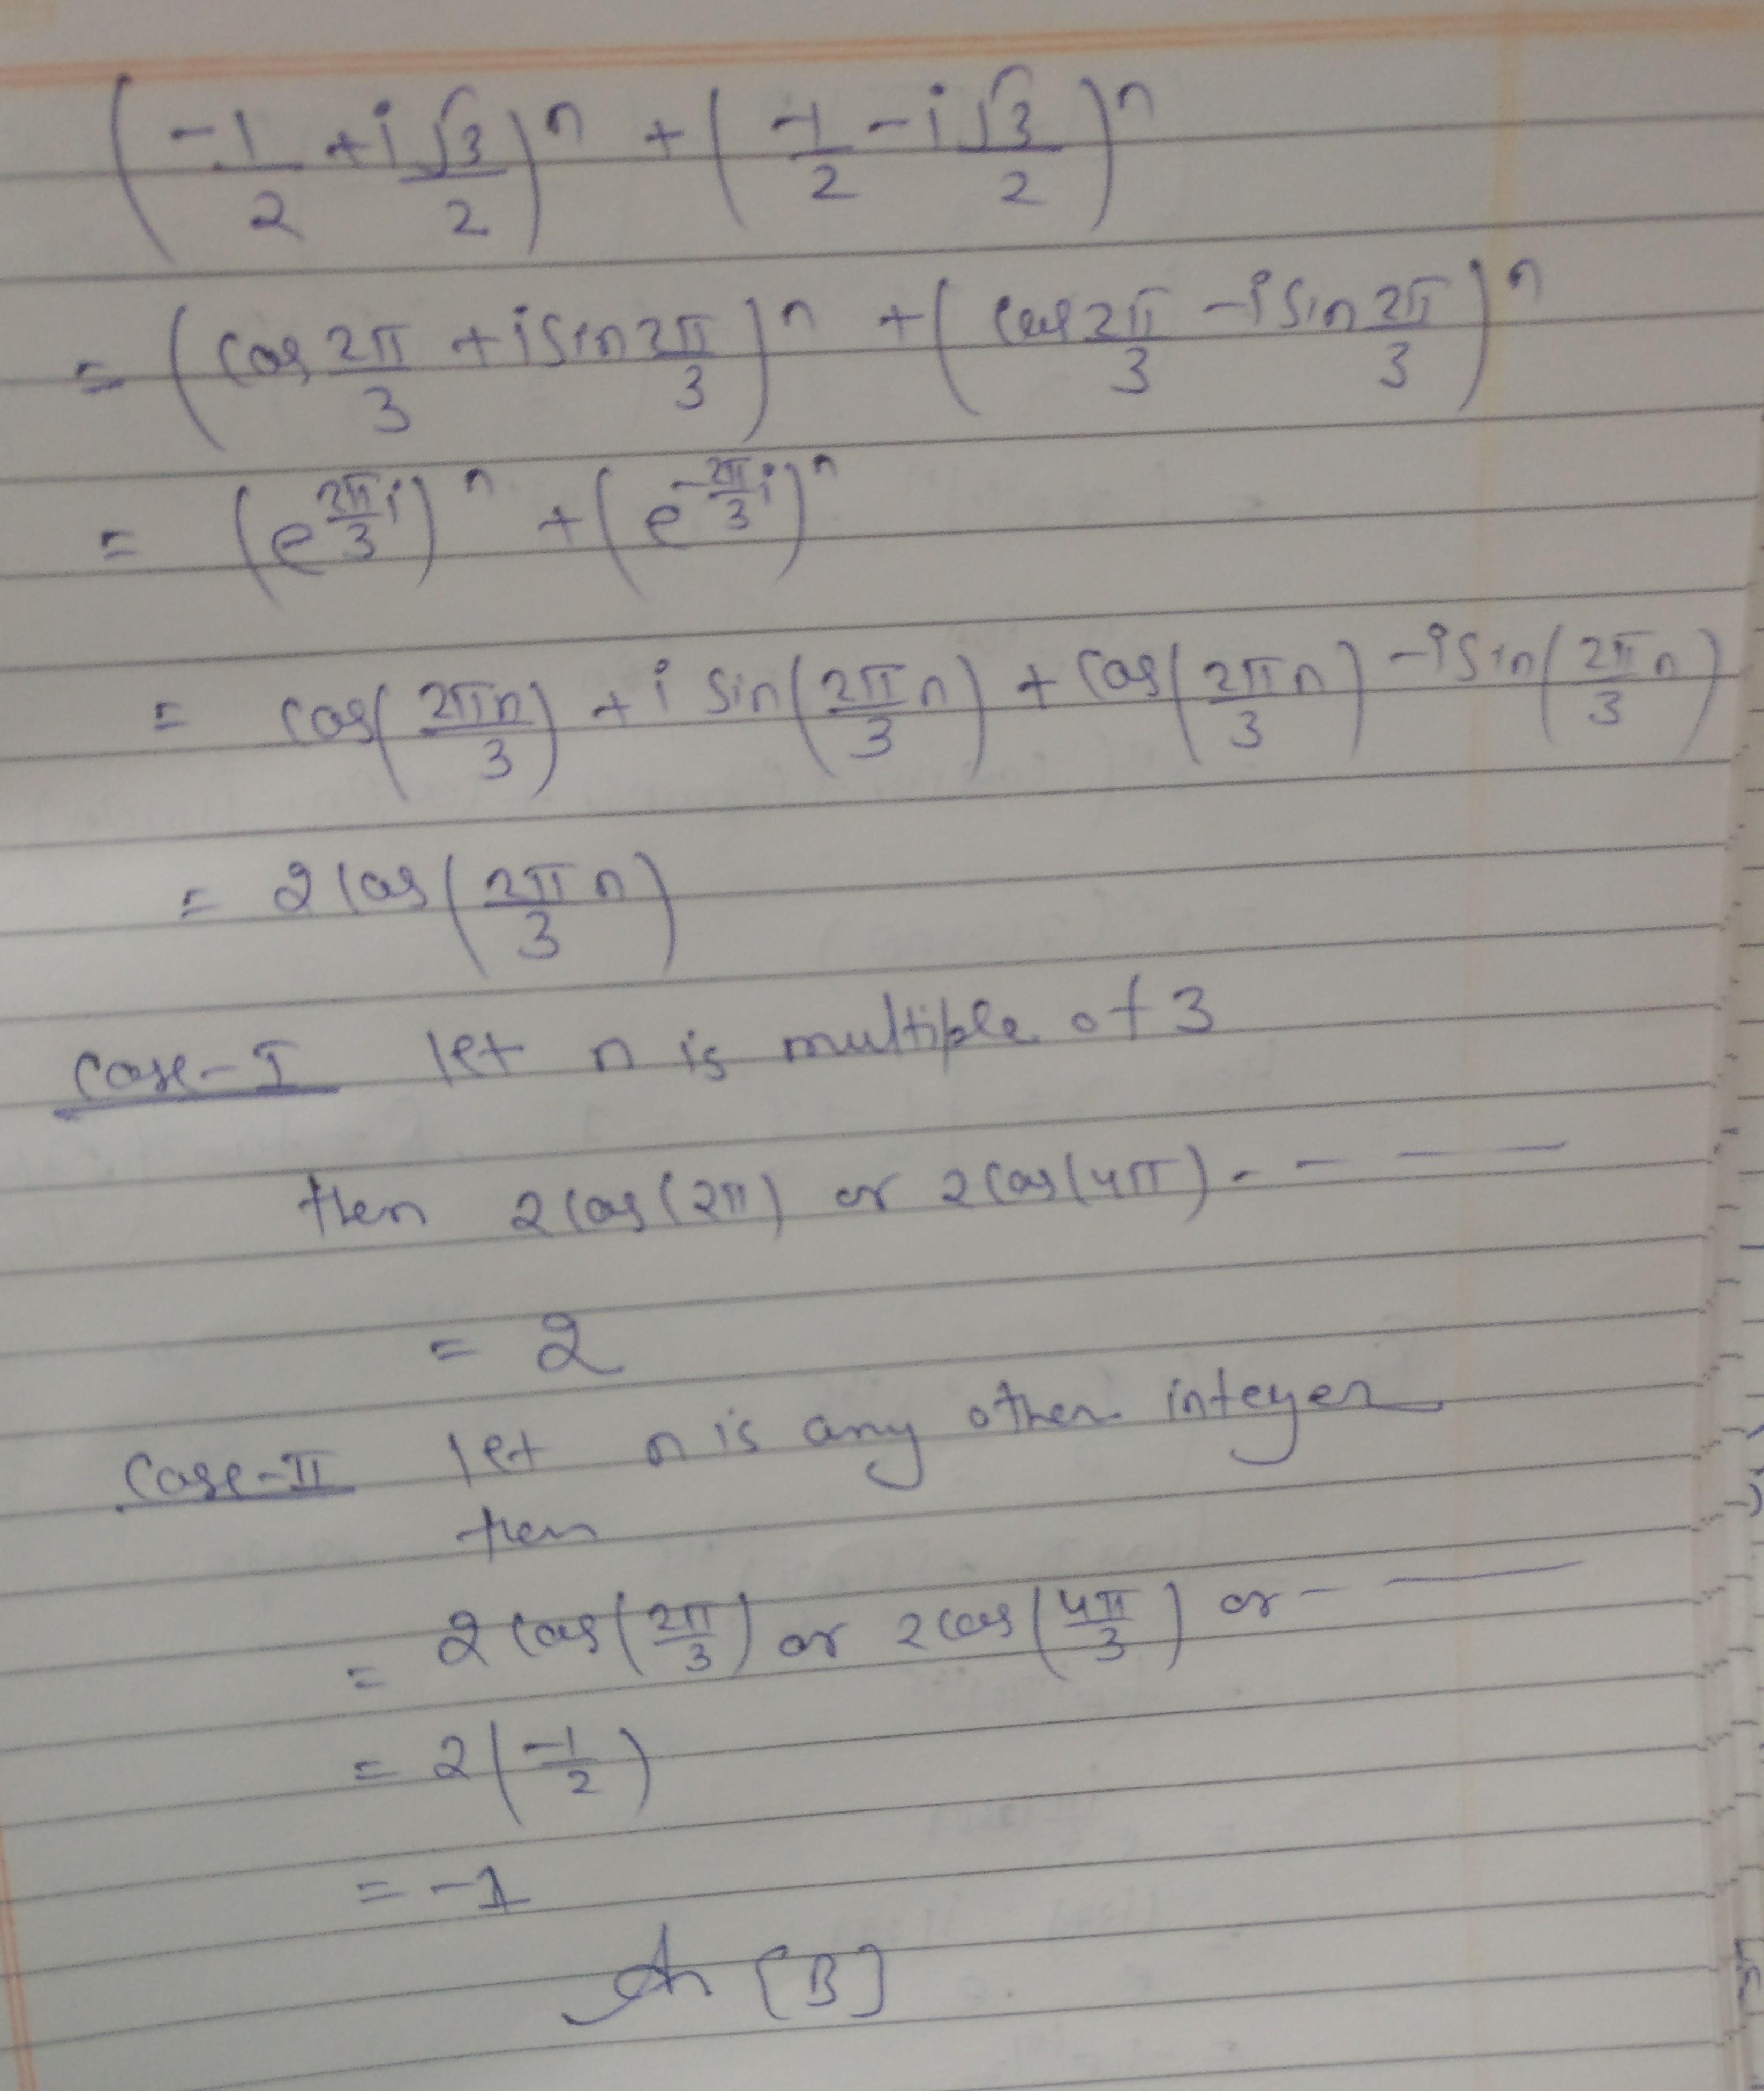 (-1/2 + i √3/2)^n + (-1/2 - i √3/2)^n
= (cos 2π/3 + i sin 2π/3)^n + (cos 2π/3 - i sin 2π/3)^n
= (e^(2π/3 i))^n + (e^(-2π/3 i))^n
= cos(2πn/3) + i sin(2π/3 n) + cos(2π/3 n) - i sin(2π/3 n)
= 2 cos(2π/3 n)
Case-I let n is multiple of 3
then 2cos(2π) or 2cos(4π) - - — —
= 2
Case-II let n is any other integer
then
= 2 cos(2π/3) or 2cos(4π/3) or - —
= 2(-1/2)
= -1
An [B]